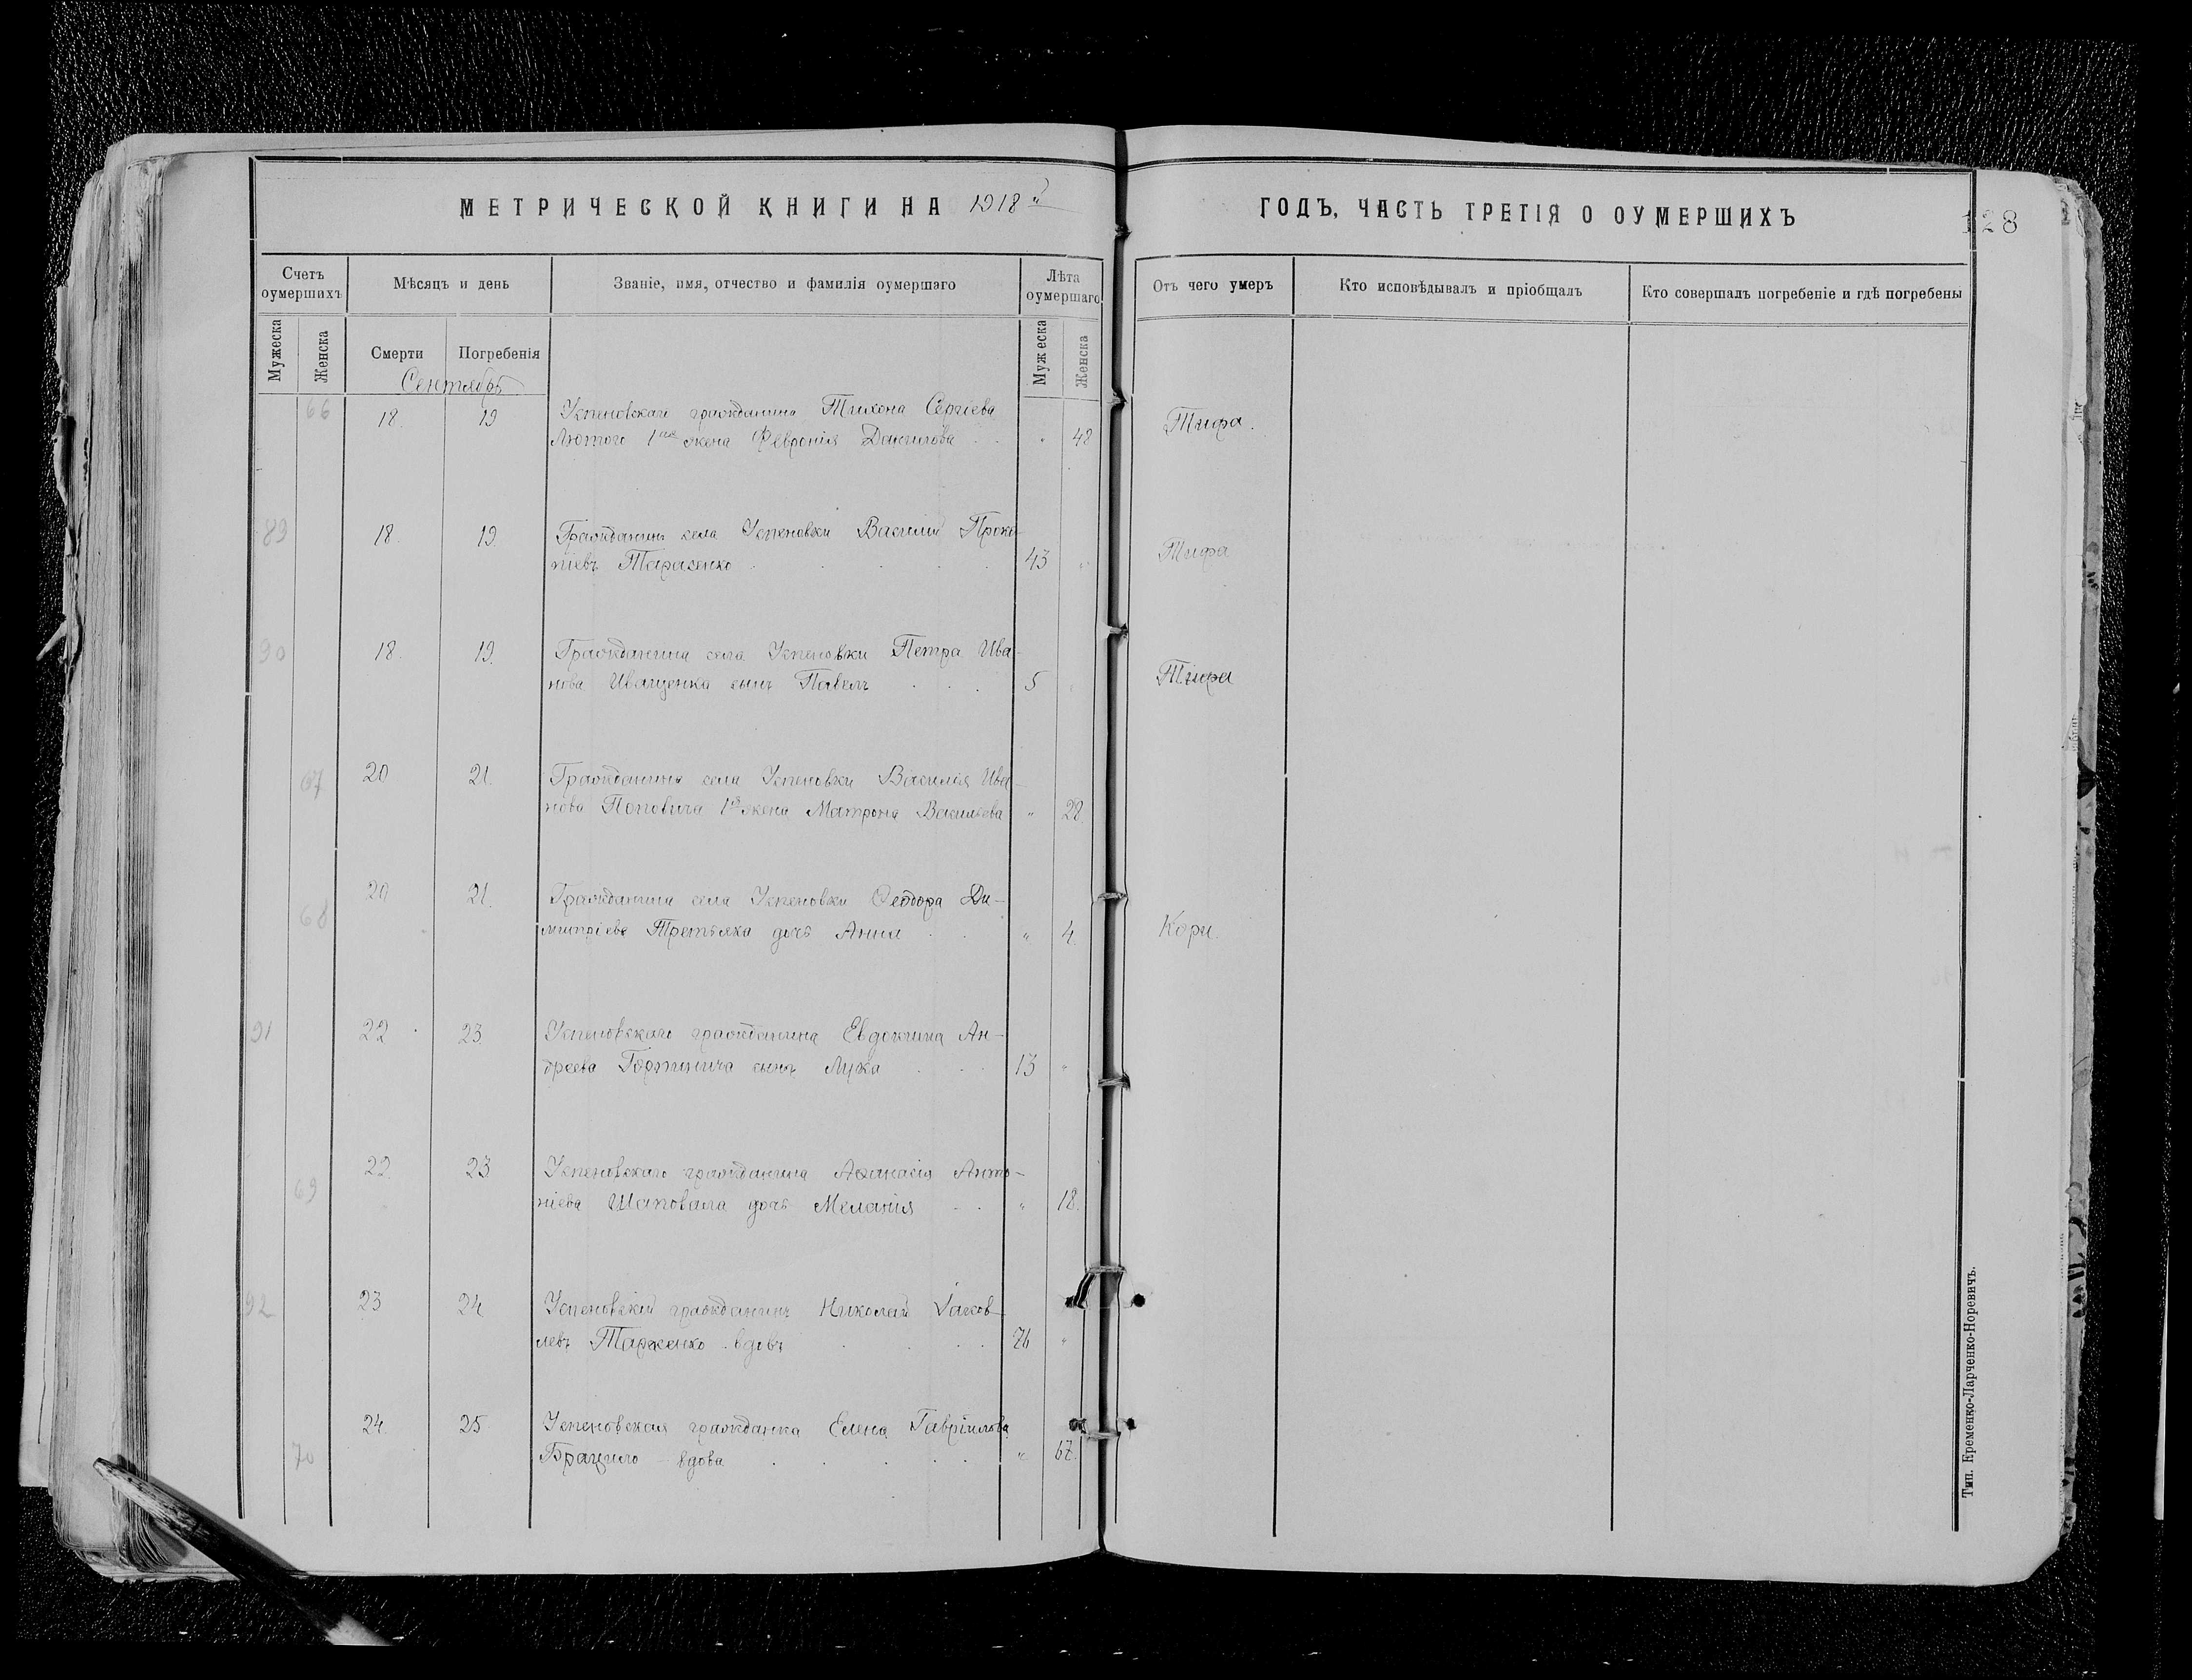 МЕТРИЧЕСКОЙ КНИГИ НА 1918 й
ГОДЪ, ЧАСТЬ ТРЕТІЯ О ОУМЕРШИХЪ
128
Счетъ оумершихъ
Мѣсяцъ и день
Званіе, имя, отчество и фамилія оумершаго
Лѣта оумершаго
Отъ чего умеръ
Кто исповѣдывалъ и пріобщалъ
Кто совершалъ погребеніе и гдѣ погребены
Мужеска
Женска
Смерти
Погребенія
Мужеска
Женска
Сентябрь
66 18. 19 Успеновскаго гражданина Тихона Сергіева
Лютого 1ая жена Февронія Данилова " 48 Тифа.
89 18. 19. Гражданинъ села Успеновки Василій Проко-
піевъ Тарасенко 43 " Тифа
90 18. 19. Гражданина села Успеновки Петра Ива-
нова Иващенка сынъ Павелъ 5 " Тифа
67 20 21. Гражданина села Успеновки Василія Ива-
нова Поповича 1я жена Матрона Васильева " 28.
68 20 21. Гражданина села Успеновки Ѳеодора Ди-
митріева Третьяка дочь Анна " 4. Кори.
91 22 23. Успеновскаго гражданина Евдокима Ан-
дреева сынъ Лука 13 "
69 22 23 Успеновскаго гражданина Аѳанасія Анто-
ніева Шаповала дочь Меланія " 18.
92 23 24 Успеновскій гражданинъ Николай Іаков-
левъ Тарасенко вдовъ 76 "
70 24. 25 Успеновская гражданка Елена Гавріилова
вдова " 67.
Тип. Еременко-Ларченко-Норевичъ.